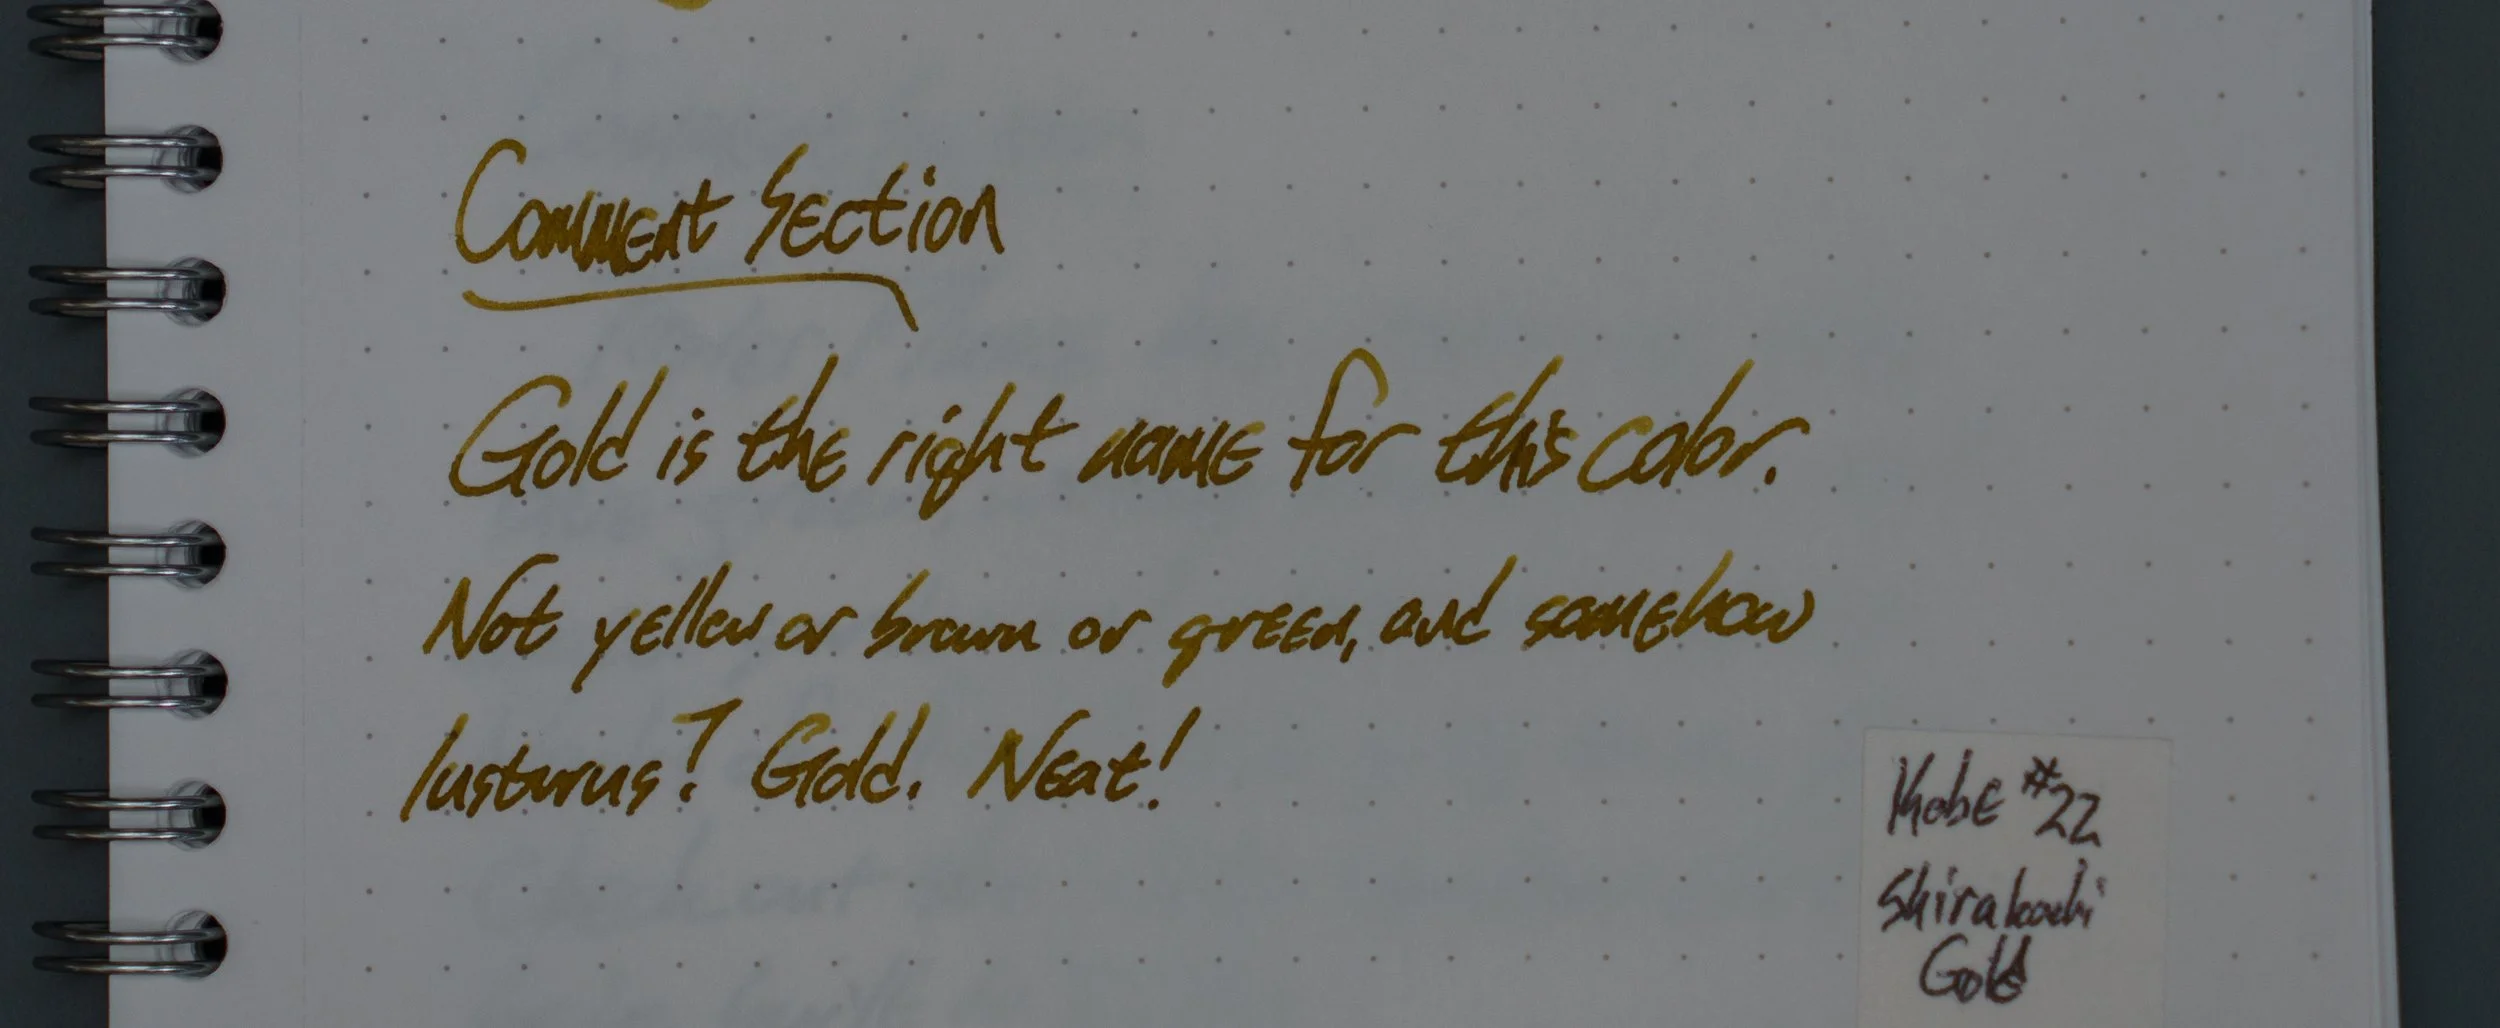 Comment Section
Gold is the right name for this color.
Not yellow or brown or green, and somehow
lusturus? Gold. Neat!
Kobe #22
Shirakochi
Gold